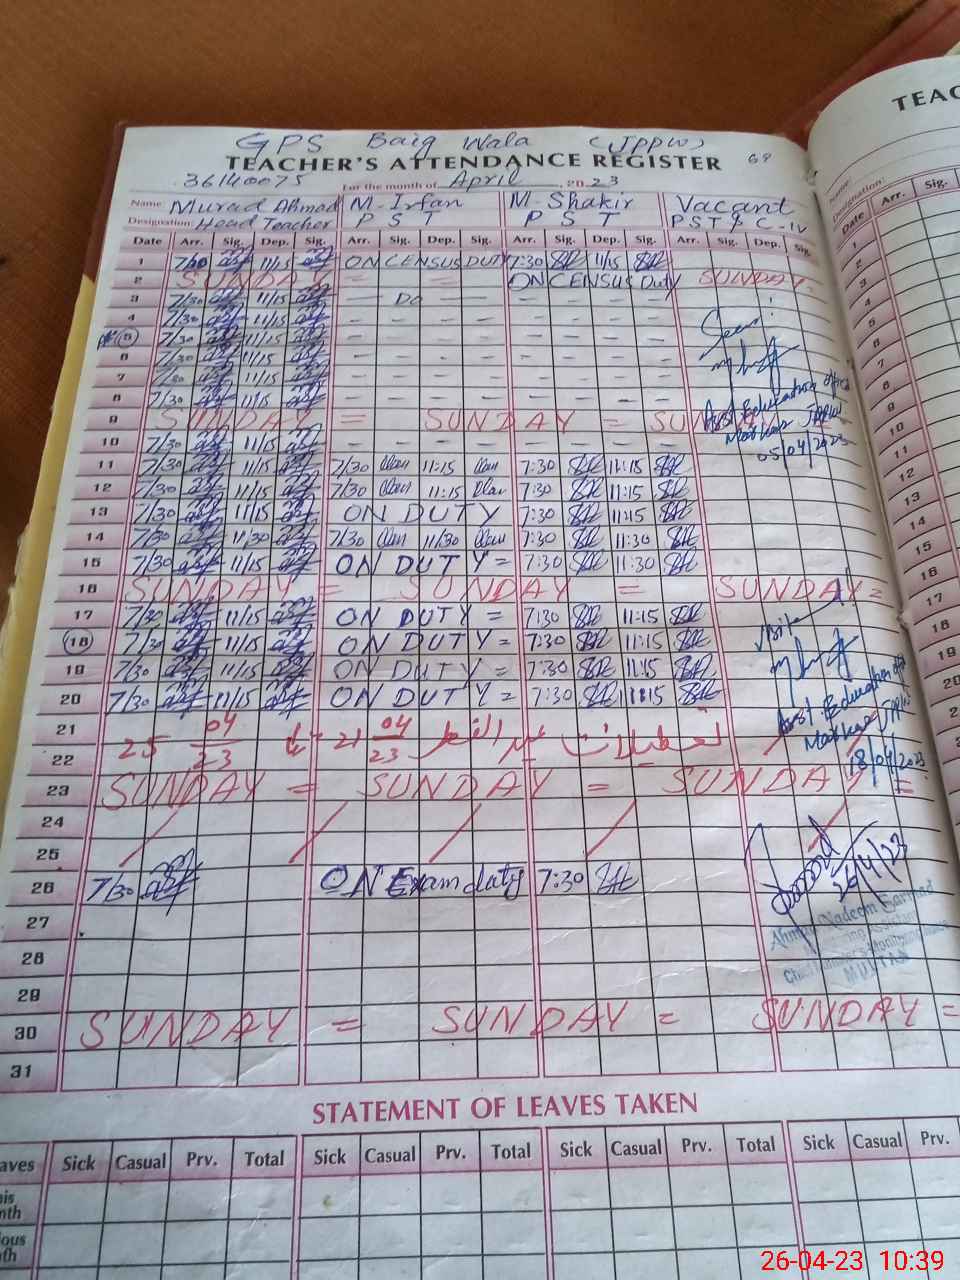 GPS Baig Wala (JPPW)
TEACHER'S ATTENDANCE REGISTER 69
36140075 For the month of April, 2023
Name: Murad Ahmad M-Irfan M-Shakir Vacant
Designation: Head Teacher P S T P S T PST & C-IV
Date Arr. Sig. Dep. Sig. Arr. Sig. Dep. Sig. Arr. Sig. Dep. Sig. Arr. Sig. Dep. Sig.
1 7/30 11/15 ON CENSUS DUTY 7:30 11/15
2 SUNDAY = = ON CENSUS Duty SUNDAY
3 7/30 11/15 — Do — — — — —
4 7/30 11/15 — — — — — — — —
5 7/30 11/15 — — — — — — — —
6 7/30 11/15 — — — — — — — —
7 7/30 11/15 — — — — — — — —
8 7/30 11/15 — — — — — — — —
9 SUNDAY = SUNDAY = SUNDAY
10 7/30 11/15 — — — — — — — —
11 7/30 11/15 7/30 11:15 7:30 11:15
12 7/30 11/15 7/30 11:15 7:30 11:15
13 7/30 11/15 ON DUTY 7:30 11:15
14 7/30 11/30 7/30 11/30 7:30 11:30
15 7/30 11/15 ON DUTY = 7:30 11:30
16 SUNDAY = SUNDAY = SUNDAY =
17 7/30 11/15 ON DUTY = 7:30 11:15
18 7/30 11/15 ON DUTY = 7:30 11:15
19 7/30 11/15 ON DUTY = 7:30 11:15
20 7/30 11/15 ON DUTY = 7:30 11:15
Seen
Asst Education Officer
05/04/2023
Asst Education
18/04/2023
21
22
تعطیلات عید الفطر 21 04/23 تا 25 04/23
23 SUNDAY = SUNDAY = SUNDAY =
24
25
26 7/30 ON Exam duty 7:30
26/4/23
Ahmad Nadeem
MULTAN
27
28
29
30 SUNDAY = SUNDAY = SUNDAY =
31
STATEMENT OF LEAVES TAKEN
aves Sick Casual Prv. Total Sick Casual Prv. Total Sick Casual Prv. Total Sick Casual Prv.
his
nth
ious
nth
TEAC
Name:
Designation:
Date Arr. Sig.
1
2
3
4
5
6
7
8
9
10
11
12
13
14
15
16
17
18
19
20
26-04-23 10:39